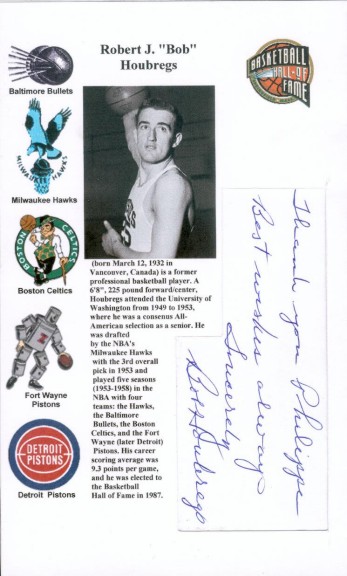 Robert J. "Bob"
Houbregs
BASKETBALL
HALL OF
FAME
Baltimore Bullets
MILWAUKEE HAWKS
Milwaukee Hawks
BOSTON CELTICS
Boston Celtics
Fort Wayne
Pistons
DETROIT
PISTONS
Detroit Pistons
(born March 12, 1932 in
Vancouver, Canada) is a former
professional basketball player. A
6'8", 225 pound forward/center,
Houbregs attended the University of
Washington from 1949 to 1953,
where he was a consenus All-
American selection as a senior. He
was drafted
by the NBA's
Milwaukee Hawks
with the 3rd overall
pick in 1953 and
played five seasons
(1953-1958) in the
NBA with four
teams: the Hawks,
the Baltimore
Bullets, the Boston
Celtics, and the Fort
Wayne (later Detroit)
Pistons. His career
scoring average was
9.3 points per game,
and he was elected to
the Basketball
Hall of Fame in 1987.
Thank you Philippe
Best wishes always
Sincerely
Bob Houbregs